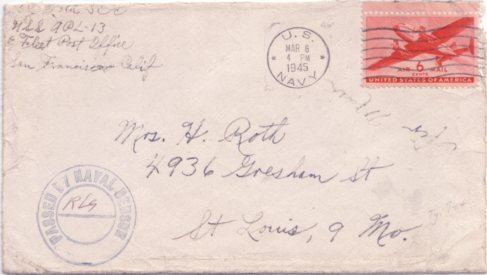 USS APL-13
℅ Fleet Post Office
San Francisco Calif
U.S.
MAR 6
4 PM
1945
NAVY
AIR 6 MAIL
CENTS
UNITED STATES OF AMERICA
Mrs. H. Roth
4936 Gresham St
St Louis, 9 Mo.
PASSED BY NAVAL CENSOR
RLG